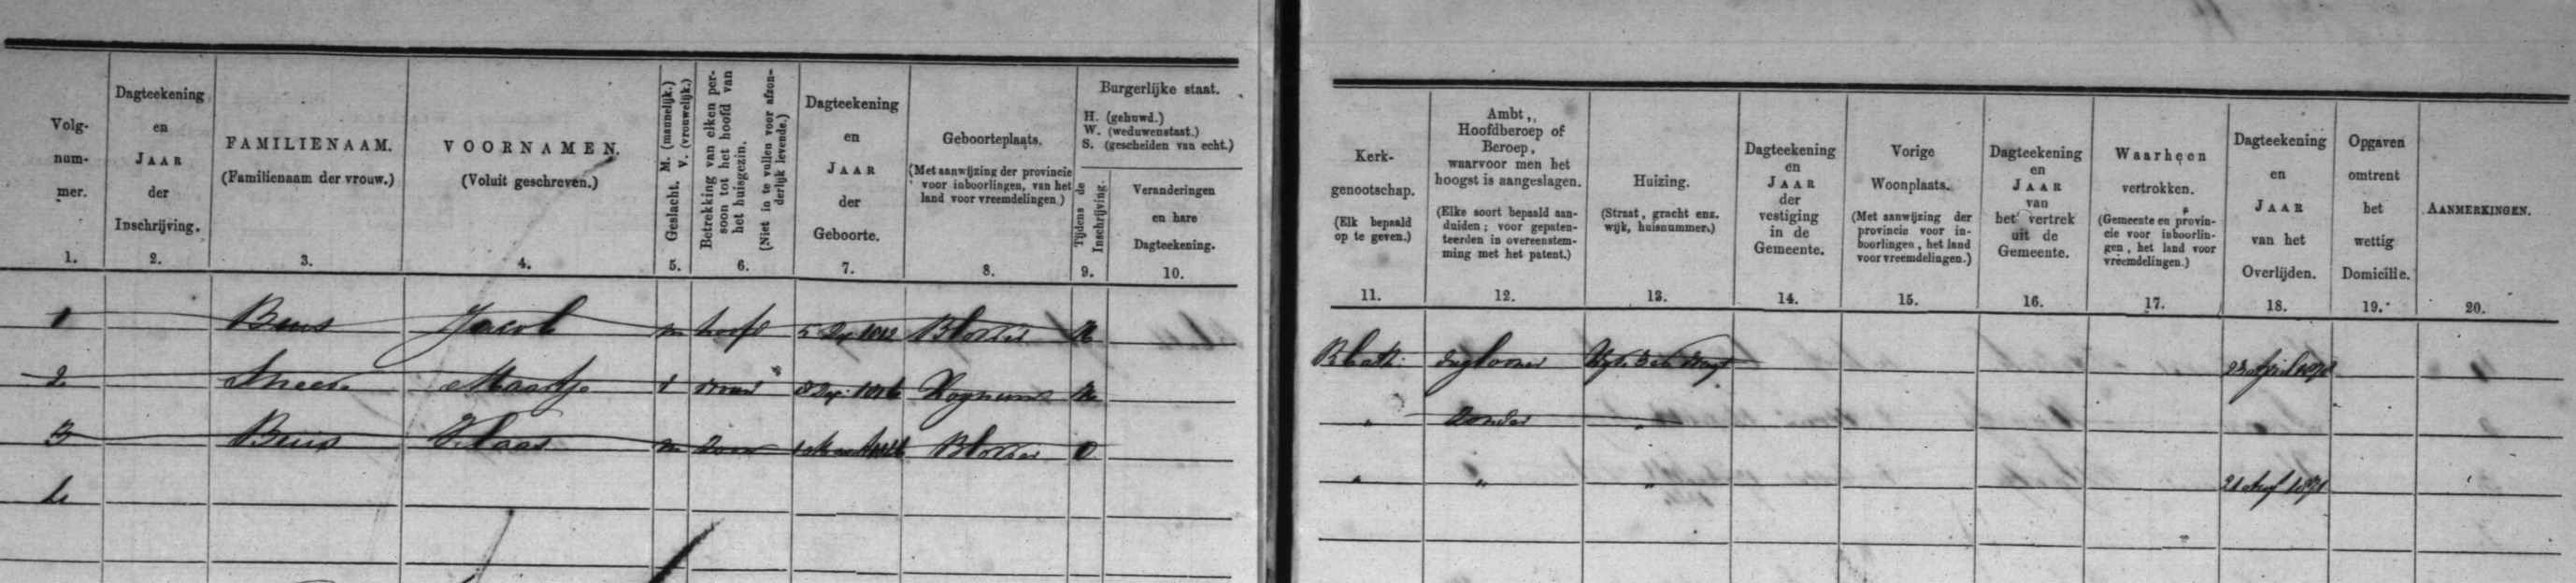 Volg-
num-
mer.
1.
Dagteekening
en
JAAR
der
Inschrijving.
2.
FAMILIENAAM.
(Familienaam der vrouw.)
3.
VOORNAMEN.
(Voluit geschreven.)
4.
Geslacht. M. (mannelijk.)
V. (vrouwelijk.)
5.
Betrekking van elken per-
soon tot het hoofd van
het huisgezin.
(Niet in te vullen voor afzon-
derlijk levende.)
6.
Dagteekening
en
JAAR
der
Geboorte.
7.
Geboorteplaats.
(Met aanwijzing der provincie
voor inboorlingen, van het
land voor vreemdelingen.)
8.
Burgerlijke staat.
H. (gehuwd.)
W. (weduwenstaat.)
S. (gescheiden van echt.)
Tijdens de
Inschrijving.
9.
Veranderingen
en hare
Dagteekening.
10.
Kerk-
genootschap.
(Elk bepaald
op te geven.)
11.
Ambt,
Hoofdberoep of
Beroep,
waarvoor men het
hoogst is aangeslagen.
(Elke soort bepaald aan-
duiden; voor gepaten-
teerden in overeenstem-
ming met het patent.)
12.
Huizing.
(Straat, gracht enz.
wijk, huisnummer.)
13.
Dagteekening
en
JAAR
der
vestiging
in de
Gemeente.
14.
Vorige
Woonplaats.
(Met aanwijzing der
provincie voor in-
boorlingen, het land
voor vreemdelingen.)
15.
Dagteekening
en
JAAR
van
het vertrek
uit de
Gemeente.
16.
Waarheen
vertrokken.
(Gemeente en provin-
cie voor inboorlin-
gen, het land voor
vreemdelingen.)
17.
Dagteekening
en
JAAR
van het
Overlijden.
18.
Opgaven
omtrent
het
wettig
Domicilie.
19.
AANMERKINGEN.
20.
1 Jacob m hoofd 5 1812 H
2 Maartje v vrouw H
3 Klaas m zoon O
4
R Kath
zonder "
" " " 1871